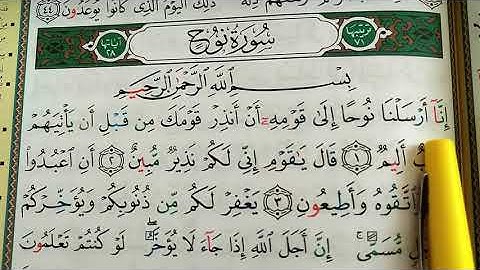 ذَٰلِكَ ٱلْيَوْمُ ٱلَّذِى كَانُوا۟ يُوعَدُونَ ٤٤
ترتيبها ٧١ سُورَةُ نُوحٍ آياتها ٢٨
بِسْمِ ٱللَّهِ ٱلرَّحْمَٰنِ ٱلرَّحِيمِ
إِنَّآ أَرْسَلْنَا نُوحًا إِلَىٰ قَوْمِهِۦٓ أَنْ أَنذِرْ قَوْمَكَ مِن قَبْلِ أَن يَأْتِيَهُمْ
أَلِيمٌ ١ قَالَ يَٰقَوْمِ إِنِّى لَكُمْ نَذِيرٌ مُّبِينٌ ٢ أَنِ ٱعْبُدُوا۟
وَٱتَّقُوهُ وَأَطِيعُونِ ٣ يَغْفِرْ لَكُم مِّن ذُنُوبِكُمْ وَيُؤَخِّرْكُمْ
مُّسَمًّى ۚ إِنَّ أَجَلَ ٱللَّهِ إِذَا جَآءَ لَا يُؤَخَّرُ ۖ لَوْ كُنتُمْ تَعْلَمُونَ